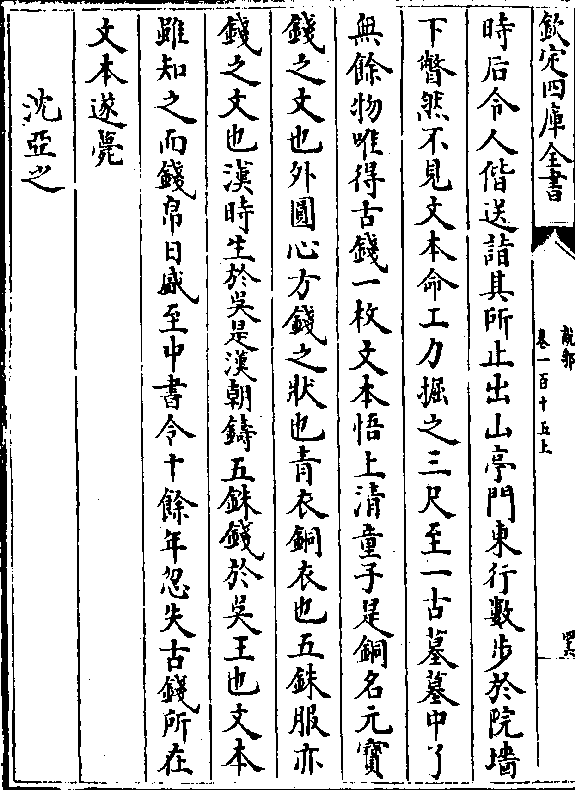 欽定四庫全書
說郛
卷一百十五上
時后令人偕送詣其所止出山亭門東行數步於院墻
下瞥然不見文本命工力掘之三尺至一古墓墓中了
無餘物唯得古錢一枚文本悟上清童子是銅名元寶
錢之文也外圓心方錢之狀也青衣銅衣也五銖服亦
錢之文也漢時生於吳是漢朝鑄五銖錢於吳王也文本
雖知之而錢帛日盛至中書令十餘年忽失古錢所在
文本遂薨
沈亞之